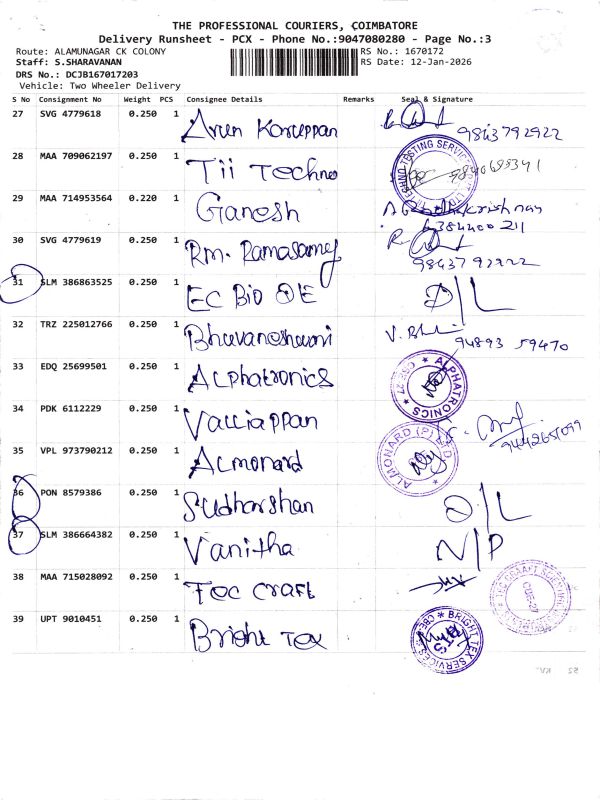 THE PROFESSIONAL COURIERS, COIMBATORE
Delivery Runsheet - PCX - Phone No.:9047080280 - Page No.:3
Route: ALAMUNAGAR CK COLONY
RS No.: 1670172
Staff: S.SHARAVANAN
RS Date: 12-Jan-2026
DRS No.: DCJB167017203
Vehicle: Two Wheeler Delivery
S No Consignment No Weight PCS Consignee Details Remarks Seal & Signature
27 SVG 4779618 0.250 1 Arun Karuppan
9843792922
28 MAA 709062197 0.250 1 Tii Techno
29 MAA 714953564 0.220 1 Ganesh
30 SVG 4779619 0.250 1 Rm. Ramasamy
9843792222
31 SLM 386863525 0.250 1 EC Bio OE D/L
32 TRZ 225012766 0.250 1 Bhuvaneshwari
94893 59470
33 EDQ 25699501 0.250 1 Alphatronics
ALPHATRONICS
34 PDK 6112229 0.250 1 Valliappan
35 VPL 973790212 0.250 1 Almonard
ALMONARD (P) LTD
36 PON 8579386 0.250 1 Sudharshan D/L
37 SLM 386664382 0.250 1 Vanitha N/P
38 MAA 715028092 0.250 1 Tec Craft
39 UPT 9010451 0.250 1 Bright Tex
BRIGHT TEX SERVICES